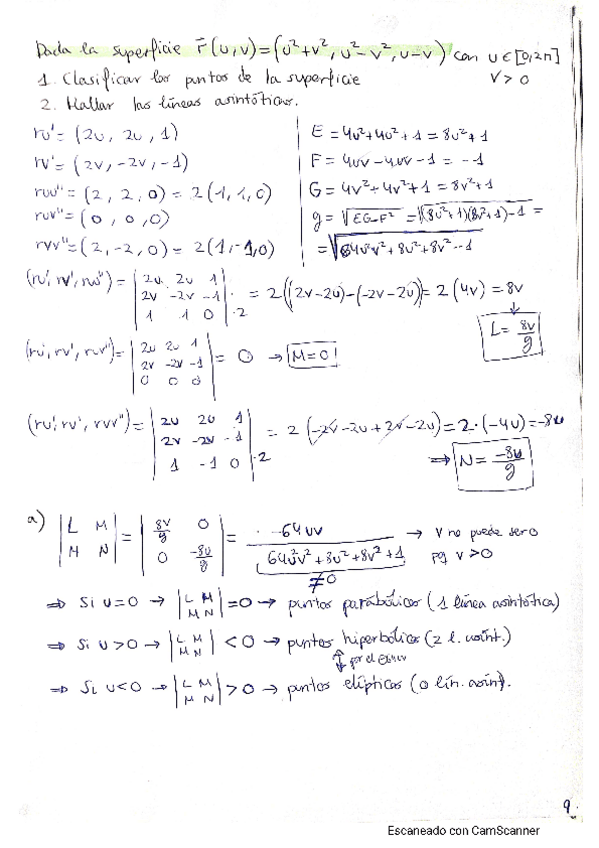 Dada la superficie r̄(u,v)=(u²+v², u²-v², u-v) con u∈[0,2π]
1. Clasificar los puntos de la superficie v>0
2. Hallar las líneas asintóticas.
ru'= (2u, 2u, 1)
rv'= (2v, -2v, -1)
ruu''= (2, 2, 0) = 2(1,1,0)
ruv''= (0, 0, 0)
rvv''= (2, -2, 0) = 2(1,-1,0)
E = 4u²+4u²+1 = 8u²+1
F = 4uv-4uv-1 = -1
G = 4v²+4v²+1 = 8v²+1
g = √EG-F² = √(8u²+1)(8v²+1)-1 =
= √64u²v²+8u²+8v²-1
(ru', rv', ruu'') = | 2u 2u 1 | = 2((2v-2u)-(-2v-2u)) = 2(4v) = 8v
2v -2v -1
1 1 0 ·2
L = 8v/g
(ru', rv', ruv'') = | 2u 2u 1 | = 0 → M=0!
2v -2v -1
0 0 0
(ru', rv', rvv'') = | 2u 2u 1 | = 2(-2v-2u+2v-2u) = 2·(-4u) = -8u
2v -2v -1
1 -1 0 ·2
⇒ N = -8u/g
a) | L M | = | 8v/g 0 | = -64uv / 64u²v²+8u²+8v²+1 → v no puede ser 0
M N 0 -8u/g ≠0 pq v>0
⇒ Si u=0 → | L M M N | =0 → puntos parabólicos (1 línea asintótica)
⇒ Si u>0 → | L M M N | <0 → puntos hiperbólicos (2 l. asínt.)
⇒ Si u<0 → | L M M N | >0 → puntos elípticos (0 lín. asínt).
9.
Escaneado con CamScanner